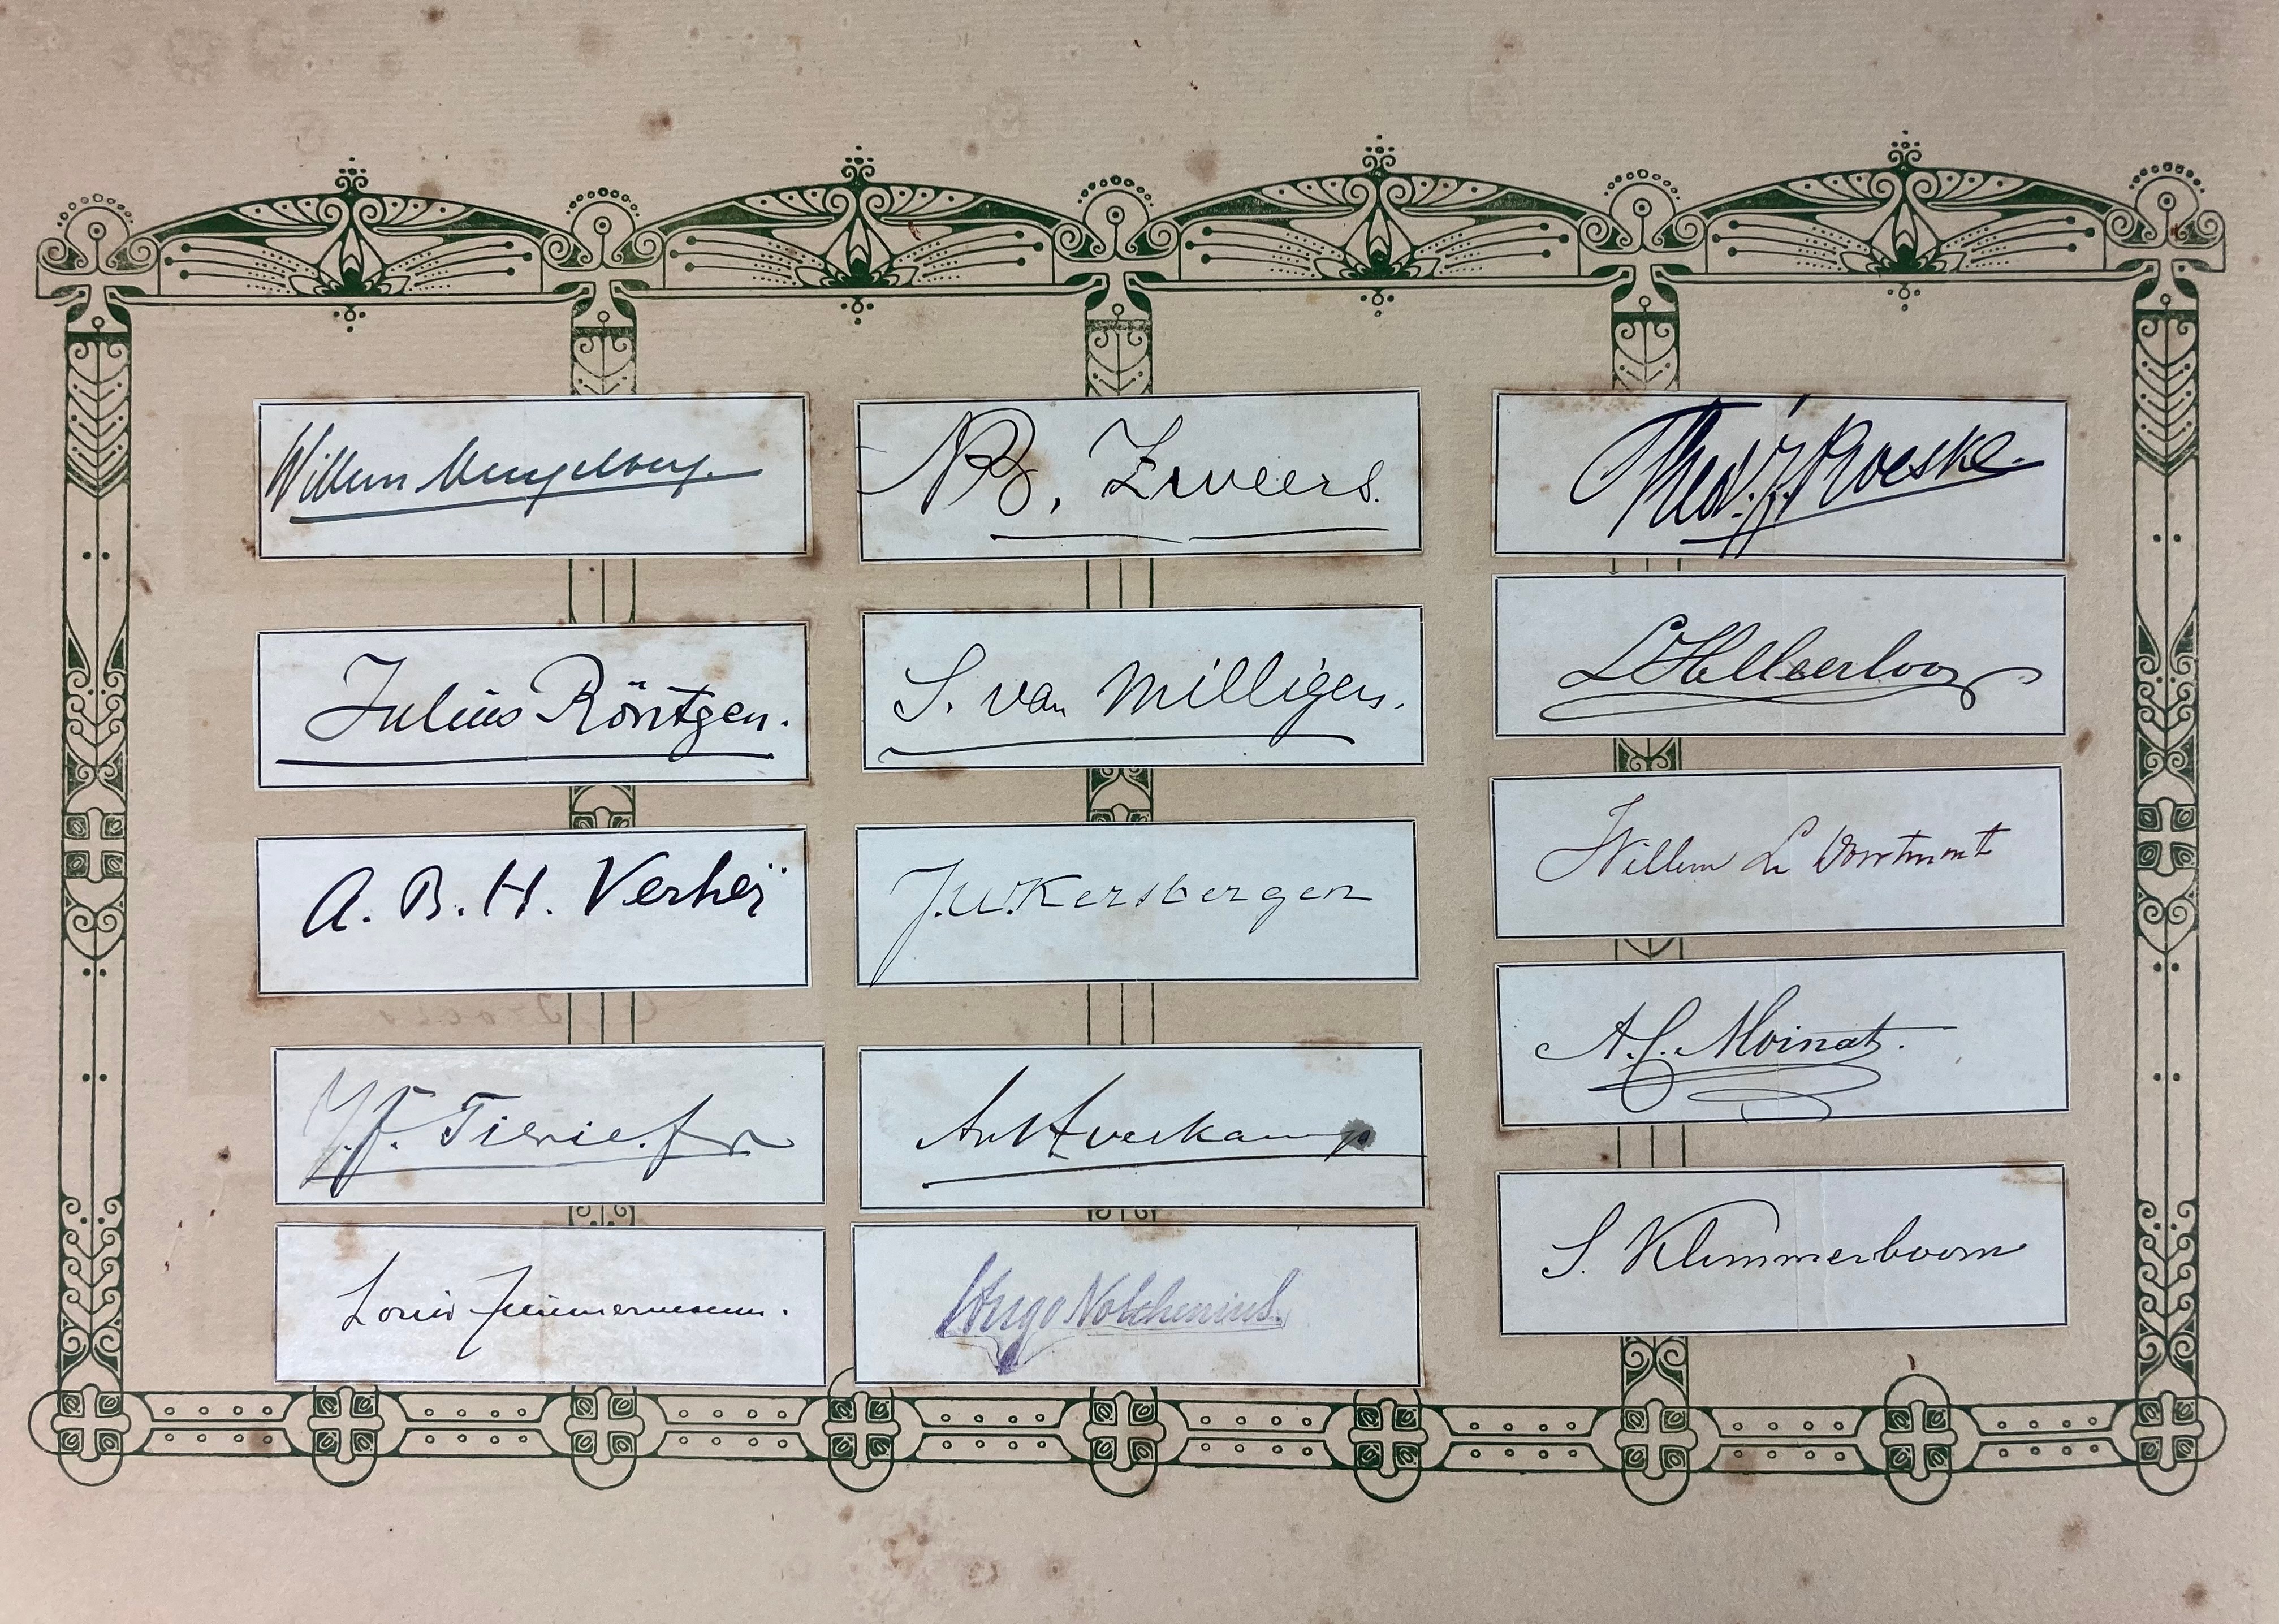 Willem Mengelberg.
Julius Röntgen.
A. B. H. Verheÿ
J. F. Tierie. fzn
Louis Zimmermann.
B. Zweers.
S. van Milligen.
J.W. Kersbergen
Ant Averkamp
Hugo Nolthenius.
Theod.
Willem
A.C. Moinat.
S. Klimmerboom